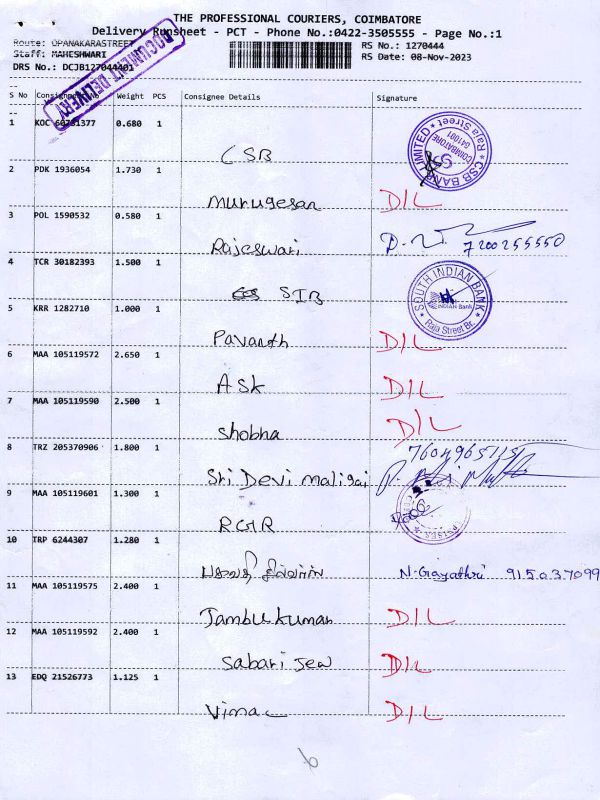 THE PROFESSIONAL COURIERS, COIMBATORE
Delivery Runsheet - PCT - Phone No.:0422-3505555 - Page No.:1
Route: OPANAKARASTREET RS No.: 1270444
Staff: MAHESHWARI RS Date: 08-Nov-2023
DRS No.: DCJB127044401
DOCUMENT DELIVERY
S No Consignment No Weight PCS Consignee Details Signature
1 KOC 60731377 0.680 1
CSB
CSB BANK LIMITED
COIMBATORE 641001
Raja Street
2 PDK 1936054 1.730 1
Murugesan D/L
3 POL 1590532 0.580 1
Rajeswari 7200255550
4 TCR 30182393 1.500 1
SIB
SOUTH INDIAN BANK
Raja Street Br.
5 KRR 1282710 1.000 1
Pavanth D/L
6 MAA 105119572 2.650 1
ASK D/L
7 MAA 105119590 2.500 1
Shobha D/L
8 TRZ 205370906 1.800 1
Sri Devi maligai
9 MAA 105119601 1.300 1
RGR
10 TRP 6244307 1.280 1
N-Gayathri 915037099
11 MAA 105119575 2.400 1
Jambukumar D/L
12 MAA 105119592 2.400 1
Sabari Jew D/L
13 EDQ 21526773 1.125 1
Vimal D/L